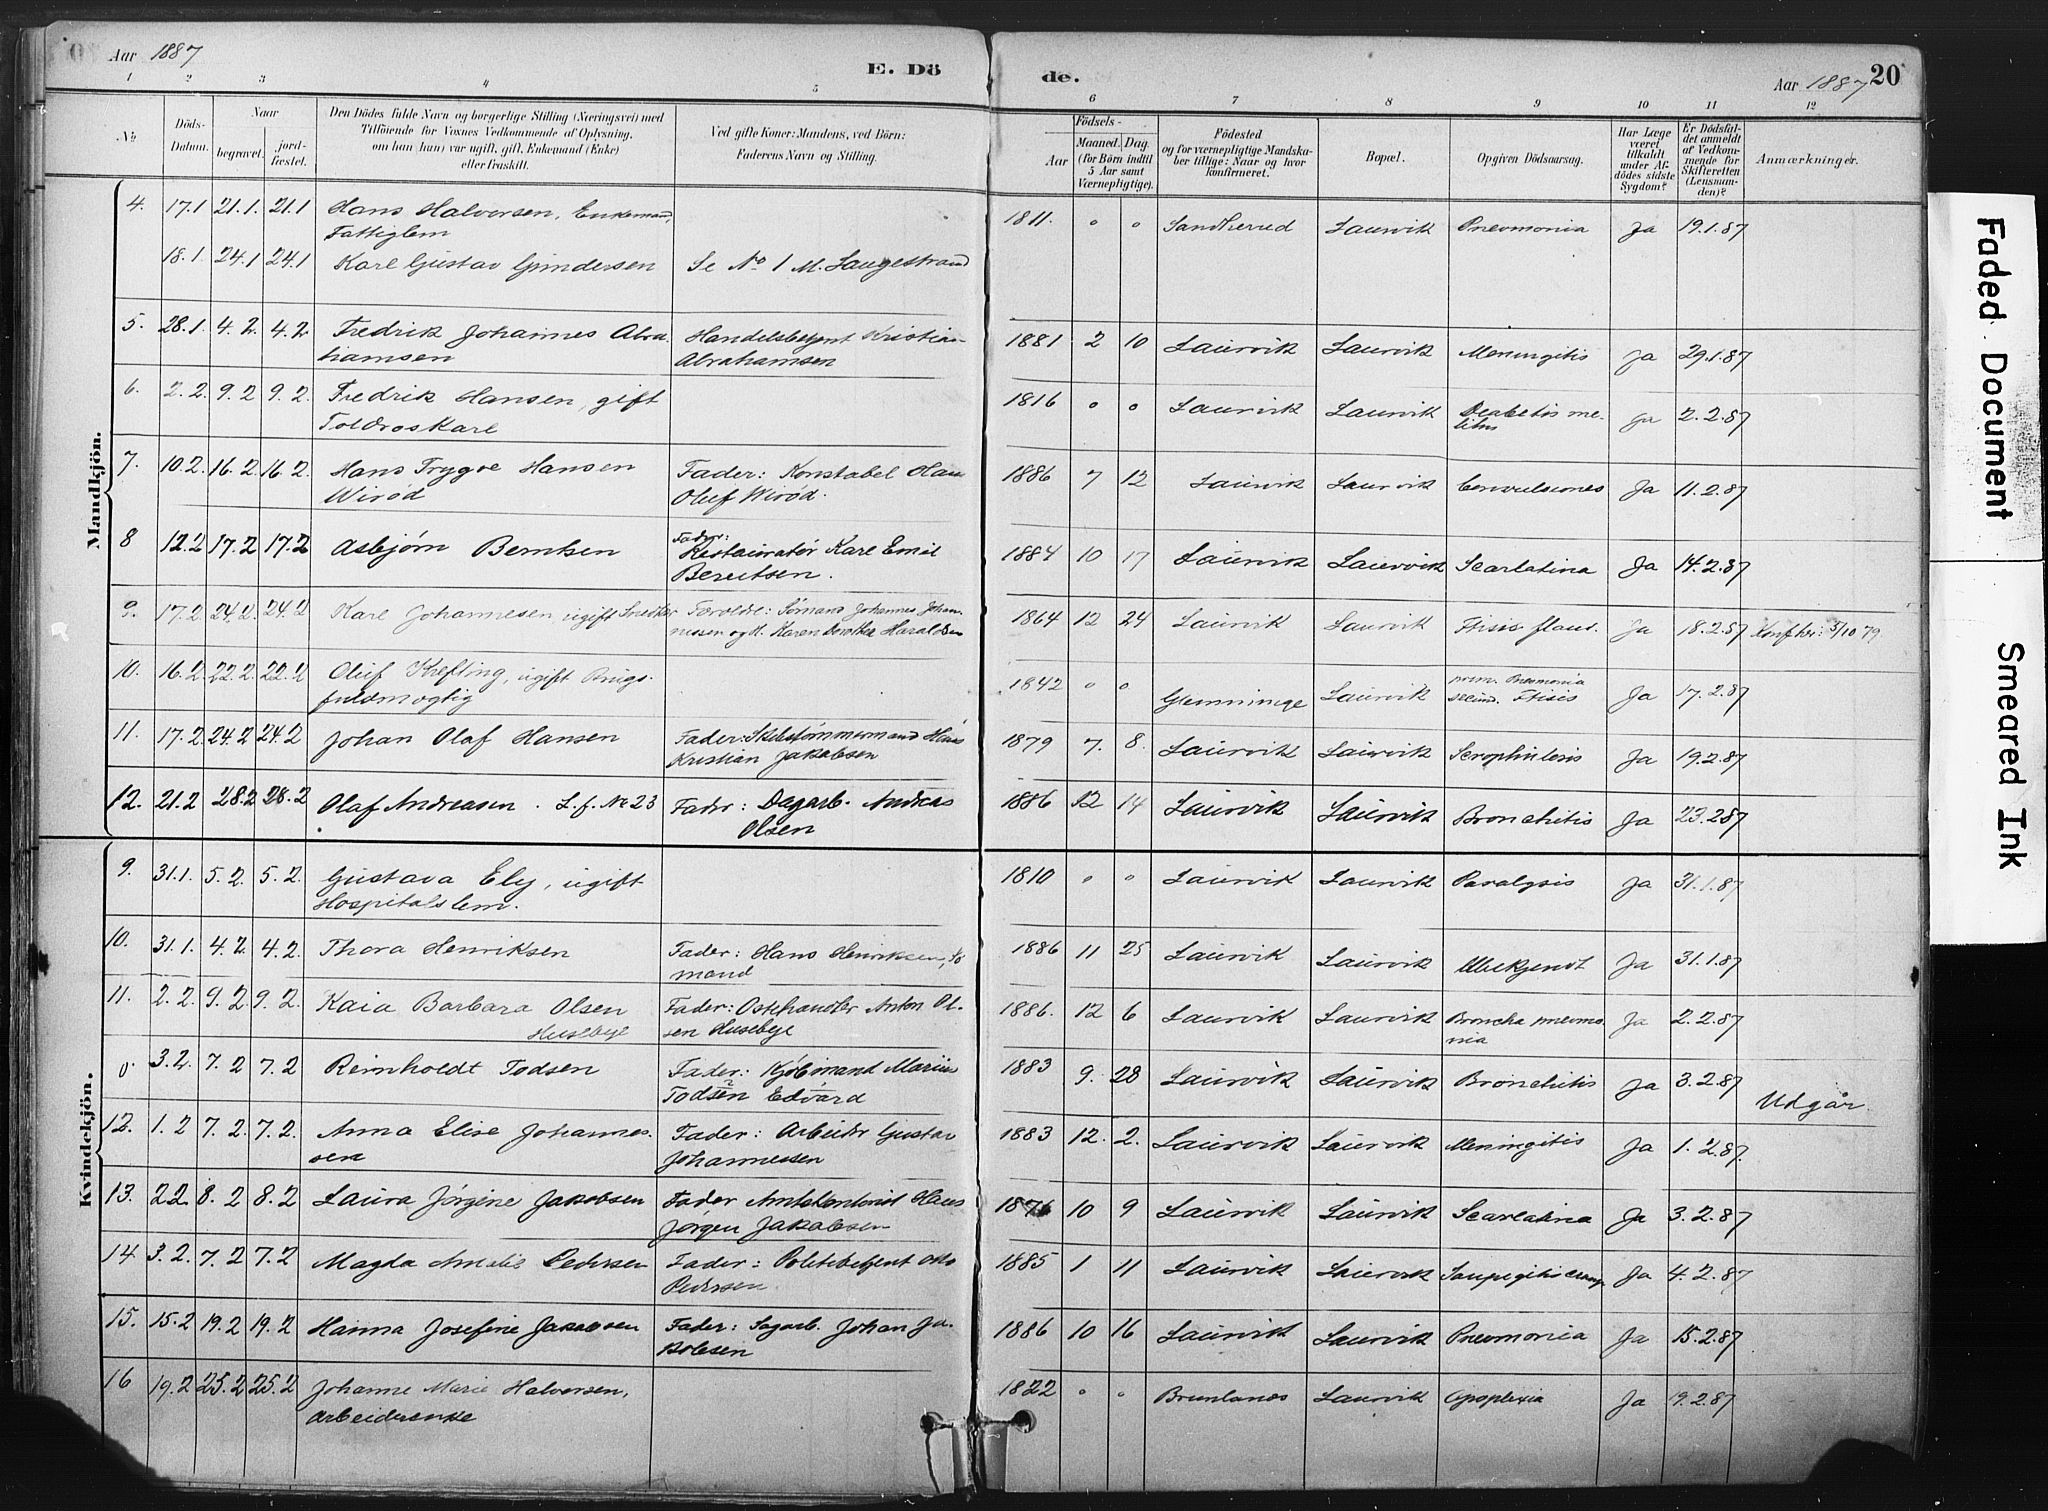 Aar 1887
E. Dö
de.
Aar 1887
20
1 2 3 4 5 6 7 8 9 10 11 12
№
Döds-Datum.
Naar
begravet.
jord-fæstet.
Den Dödes fulde Navn og borgerlige Stilling (Næringsvei) med
Tilföiende for Voxnes Vedkommende af Oplysning,
om han (hun) var ugift, gift, Enkemand (Enke)
eller fraskilt.
Ved gifte Koner: Mandens, ved Börn:
Faderens Navn og Stilling.
Födsels-
Aar
Maaned. Dag.
(for Börn indtil
5 Aar samt
Værnepligtige).
Födested
og for værnepligtige Mandska-
ber tillige: Naar og hvor
konfirmeret.
Bopæl.
Opgiven Dödsaarsag.
Har Læge
været
tilkaldt
under Af-
dödes sidste
Sygdom?
Er Dödsfal-
det anmeldt
af Vedkom-
mende for
Skifteretten
(Lensman-
den)?
Anmærkninger.
Mandkjön.
4. 17.1 21.1. 21.1 Hans Halvorsen, Enkemand, 1811. " " Sandherred Laurvik Pneumonia Ja 19.1.87
Fattiglem
18.1. 24.1 24.1 Karl Gustav Gundersen Se No 1 M. Langestrand
5. 28.1. 4.2. 4.2. Fredrik Johannes Abra- Handelsbetjent Kristian 1881 2 10 Laurvik Laurvik Meningitis Ja 29.1.87
hamsen Abrahamsen
6. 2.2. 9.2 9.2. Fredrik Hansen, gift 1816 " " Laurvik Laurvik Diabetis me- Ja 2.2.87
Toldroskarl litus
7. 10.2. 16.2. 16.2. Hans Trygve Hansen Fader: Konstabel Hans 1886 7 12 Laurvik Laurvik Convulsiones Ja 11.2.87
Wirød Oluf Wirød.
8 12.2 17.2 17.2 Asbjørn Berntsen Fader: Restauratør Karl Emil 1884 10 17 Laurvik Laurvik Scarlatina Ja 14.2.87
Berntsen.
9. 17.2. 24.2. 24.2 Karl Johannesen ugift Snedker Foreldre: Sømand Johannes Johan- 1864 12 24 Laurvik Laurvik Ftisis Ja 18.2.87 5/10 79
nessen og H. Karen Dorothea Haraldsen
10. 16.2. 22.2. 22.2 Oluf Krefting, ugift Brugs- 1842 " " Glemminge Laurvik prim. Pneumonia Ja 17.2.87
fuldmægtig secund. Ftisis
11. 17.2. 24.2 24.2 Johan Olaf Hansen Fader: Skibstømmermand Hans 1879 7. 8. Laurvik Laurvik Scrophulosis Ja 19.2.87
Kristian Jakobsen
12. 21.2 28.2 28.2 Olaf Andreasen. L.f. No 23 Fader: Dagarb. Andreas 1886 12 14 Laurvik Laurvik Bronchitis Ja 23.2.87
Olsen
Kvindekjön.
9. 31.1. 5.2. 5.2. Gustava Ely, ugift 1810 " " Laurvik Laurvik Paralysis Ja 31.1.87
Hospitalslem.
10. 31.1. 4.2. 4.2. Thora Henriksen Fader: Hans Henriksen, Sø 1886 11 25 Laurvik Laurvik Ubekjendt Ja 31.1.87
mand
11. 2.2. 9.2 9.2. Kaia Barbara Olsen Fader: Ostehandler Anton Ol- 1886. 12 6 Laurvik Laurvik Broncha pneumo- Ja 2.2.87
Husebye sen Husebye nia
0 3.2. 7.2 7.2 Reinholdt Todsen Fader: Kjøbmand Marius 1883 9. 28 Laurvik Laurvik Bronchitis Ja 3.2.87 Udgår.
Todsen Edvard
12. 1.2 7.2. 7.2. Anna Elise Johannes- Fader: Arbeider Gustav 1883 12. 2. Laurvik Laurvik Meningitis Ja 1.2.87.
sen Johannessen
13. 2.2 8.2 8.2 Laura Jørgine Jakobsen Fader Amtskontorist Hans 1876 10 9 Laurvik Laurvik Scarlatina Ja 3.2.87
Jørgen Jakobsen
14 3.2. 7.2 7.2 Magda Amalie Pedersen Fader: Politibetjent Otto 1885 1 11 Laurvik Laurvik Ja 4.2.87
Pedersen
15. 15.2 19.2 19.2 Hanna Josefine Jakobsen Fader: Sagarb. Johan Ja- 1886 10 16 Laurvik Laurvik Pneumonia Ja 15.2.87
kobsen
16 19.2 25.2 25.2 Johanne Marie Halvorsen, 1822 " " Brunlanes Laurvik Apoplexia Ja 19.2.87
Arbeiderenke
Faded Document
Smeared Ink